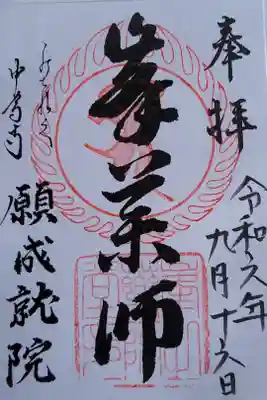 奉拝
令和六年九月十六日
峯薬師
中尊寺
願成就院